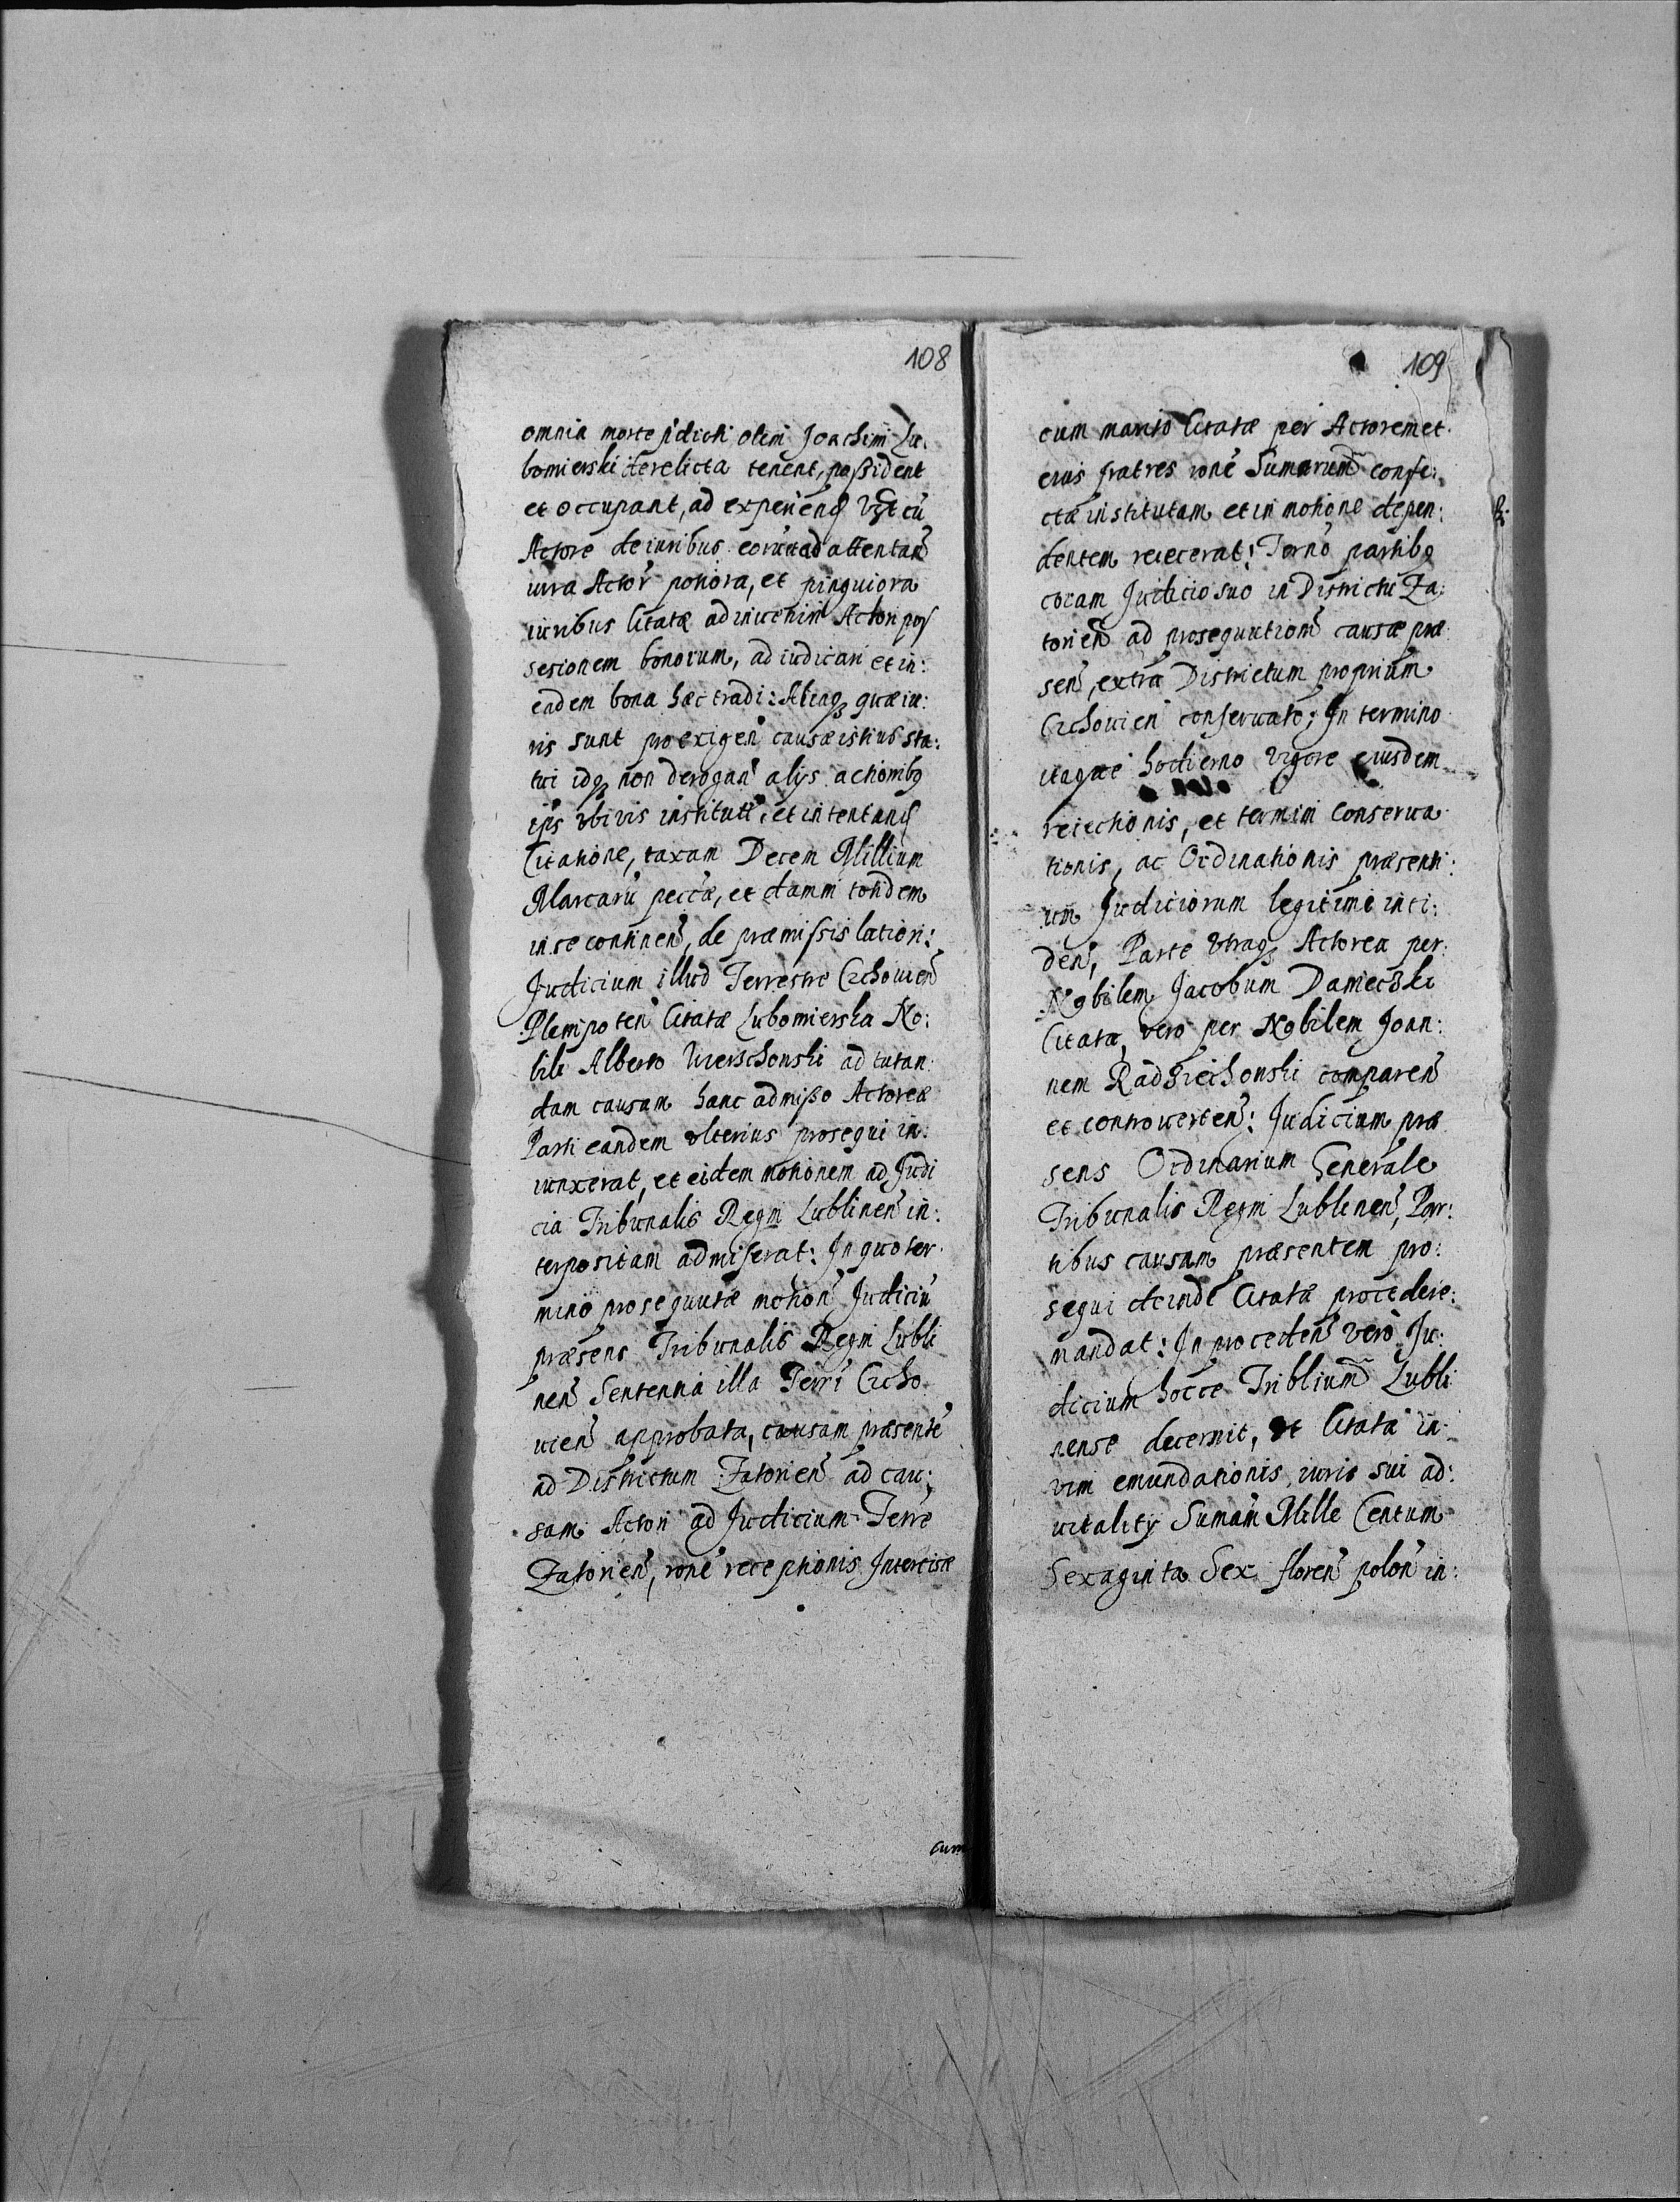 108
omnia morte pdicti olim Joachimi Lu:
bomierski derelicta tenent, possident
et occupant, ad experiend
Actore de iuribus eorum ad attentan
iura Actor potiora, et pinguiora
iuribus Citatæ adinvenini Actori pos
sesionem bonorum, adiudicari et in:
eadem bona hac tradi: Aliaq quæ iu:
ris sunt pro exigen causæ istius sta:
tui idq non derogan alijs actionibq
ejs ubivis institutt et intentand
Citatione, taxam Decem Millium
Marcarū peccæ, et damni tondem
in se continen, de præmissis lation:
Judicium illud Terrestre Czchouien
Plenipoten Citatæ Lubomierska No:
bili Alberto Wierschonski ad tutan
dam causam hanc admisso Actoreæ
Parti eandem ulterius prosequi in:
iunxerat, et eidem motionem ad Judi
cia Tribunalis Regni Lublinen in:
terpositam admiserat: In quo ter:
mino prosequutæ motion Judiciū
præsens Tribunalis Regni Lubli
nen Sententia illa Terri Czcho
uien approbata, causam præsente
ad Districtum Zatorien ad cau:
sam Actori ad Judicium Terre
Zatorien, rone receptionis Intercisæ
cum
109
cum marito Citatæ per Actorem et
eius fratres rone Sumarum confe:
ctæ institutam et in motione depen:
dentem reiecerat: Termo partibq
coram Judicio suo in Districtu Za:
torien ad prosequution causæ præ
sen, extra Districtum proprium
Czchouien conseruato; In termino
itaque hodierno vigore eiusdem
reiectionis, et termini conserua
tionis, ac Ordinationis præsenti:
um Judiciorum legitime inci:
den, Parte utraq Actorea per
Nobilem Jacobum Damiecski
Citata, vero per Nobilem Joan:
nem Radziechonski comparen
et controuerten: Judicium præ
sens Ordinarium Generale
Tribunalis Regni Lublinen, Par:
tibus causam præsentem pro:
sequi deinde Citatæ procedere:
mandat: In proceden vero Ju:
dicium hocce Triblium Lubli
nense decernit, ut Citata in
vim emundationis iuris sui ad:
vitality Sumam Mille Centum
Sexaginta Sex floren polon in: